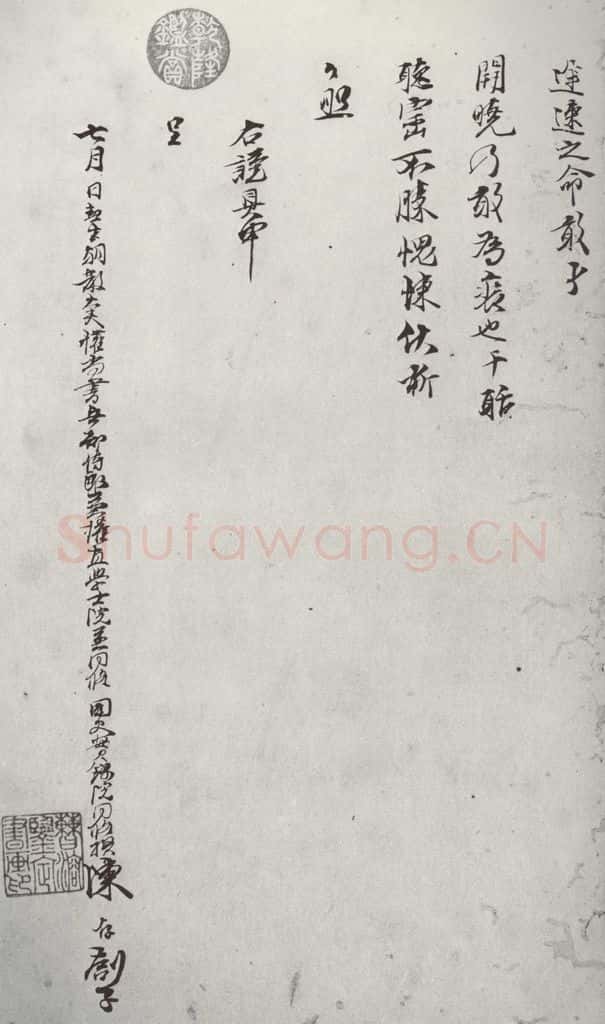 逹速之命敢于
開曉乃敢為哀也干聒
聽 不勝愧悚伏祈
台照
右謹具申
呈
七月 日 朝散大夫權尚書兵部侍郎兼權直學士院兼同修 國史實錄院同修撰陳 劄子
乾隆鑑賞
Shufawang.CN